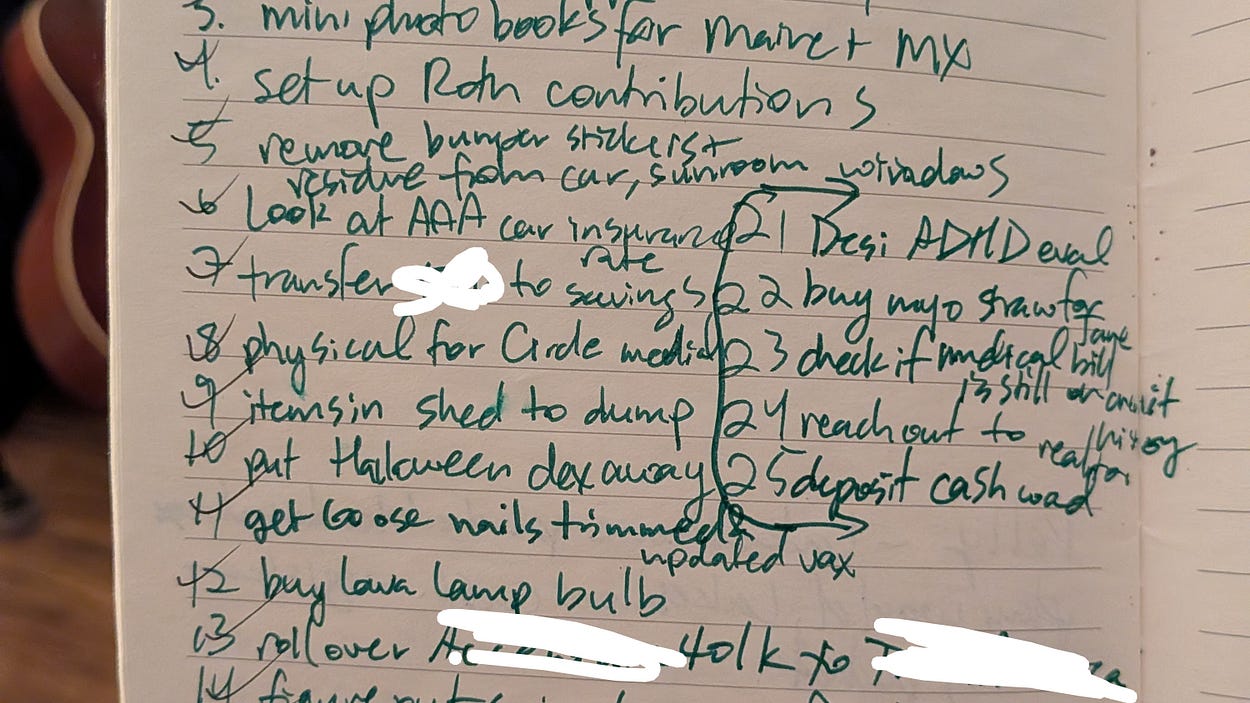 3. mini photo books for Maine + MX
4. set up Roth contributions
5 remove bumper stickers +
residue from car, sunroom windows
6 look at AAA car insurance
rate
7 transfer to savings
8 physical for Circle medical
9 items in shed to dump
10 put Halloween dex away
11 get Goose nails trimmed &
updated vax
12 buy lava lamp bulb
13 rollover 401k to
14 figure out
21 Desi ADHD eval
22 buy mayo straw for
Jane
23 check if medical bill
is still on credit
history
24 reach out to
realtor
25 deposit cash wad